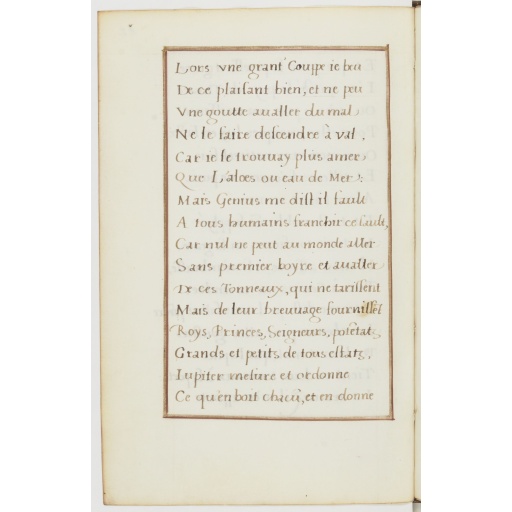 Lors vne grant Couppe ie beu
De ce plaisant bien, et ne peu
Vne goutte aualler du mal
Ne le faire descendre à val.
Car ie le trouuay plus amer
Que L'aloes ou eau de Mer:
Mais Genius me dist il fault
A tous humains franchir ce sault,
Car nul ne peut au monde aller
Sans premier boyre et aualler
De ces Tonneaux, qui ne tarissent
Mais de leur breuuage fournissẽt
Roys, Princes, Seigneurs, potẽtatz,
Grands et petits de tous estatz,
Iupiter mesure et ordonne
Ce qu'en boit chacũ, et en donne